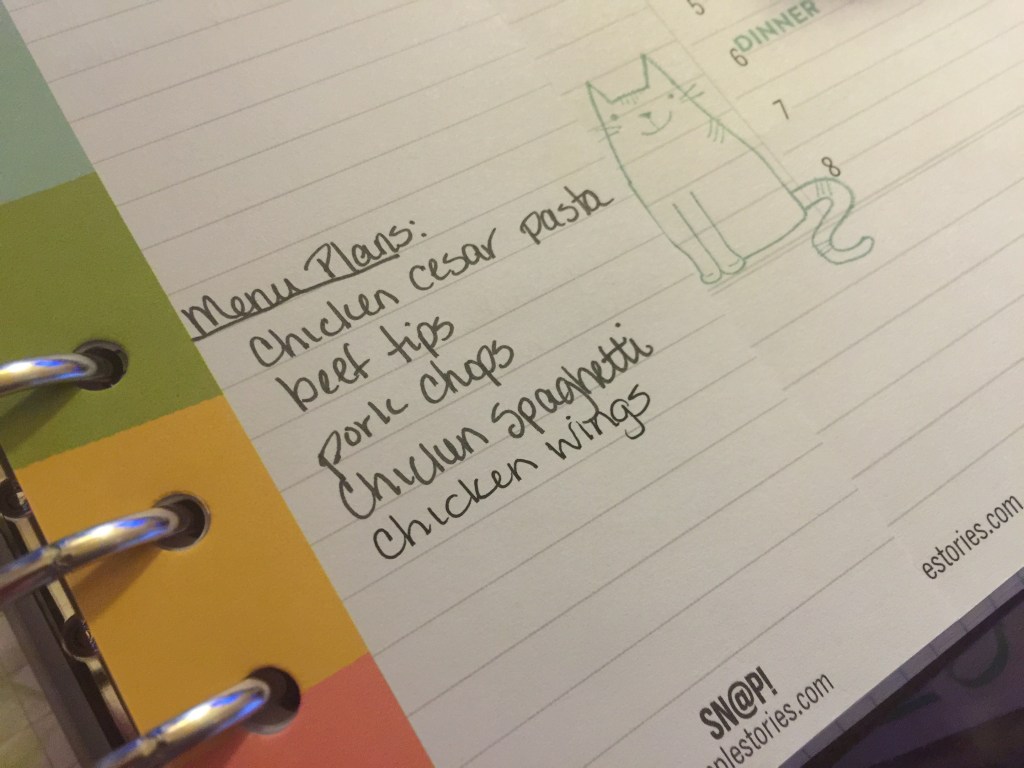 5
6 DINNER
7
8
Menu Plans:
Chicken cesar pasta
beef tips
pork chops
Chicken Spaghetti
Chicken wings
estories.com
SN@P!
plestories.com